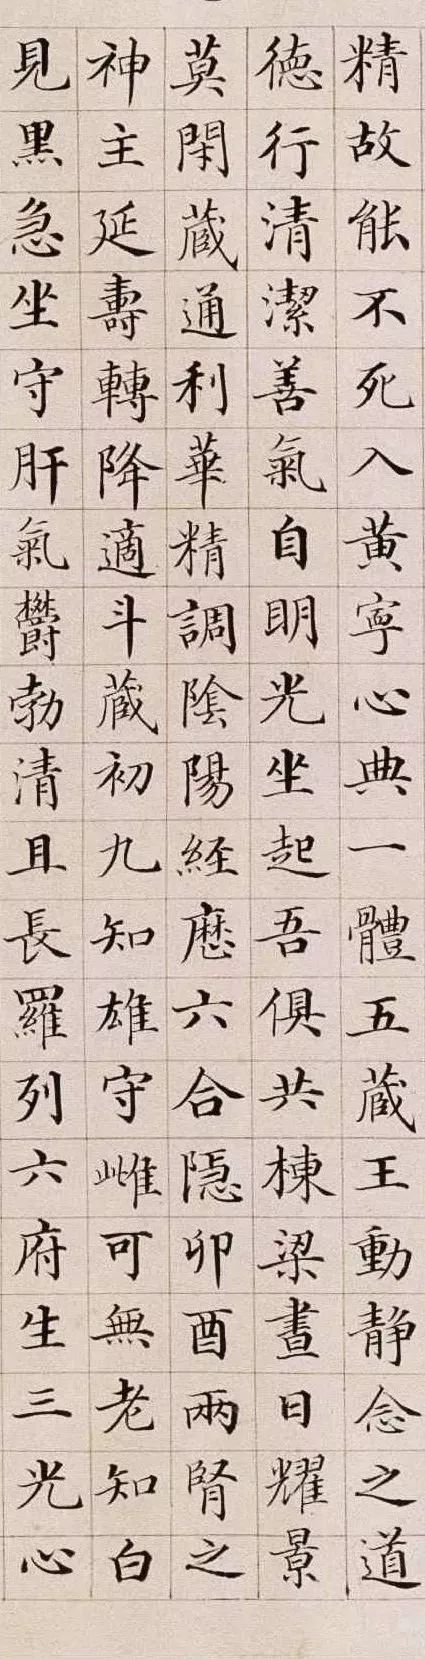 精故能不死入黄寧心典一體五蔵王動静念之道
徳行清潔善氣自明光坐起吾俱共棟梁晝日耀景
莫閈蔵通利華精調陰陽経歷六合隠卯酉兩腎之
神主延壽轉降適斗蔵初九知雄守雌可無老知白
見黒急坐守肝氣欎勃清且長羅列六府生三光心